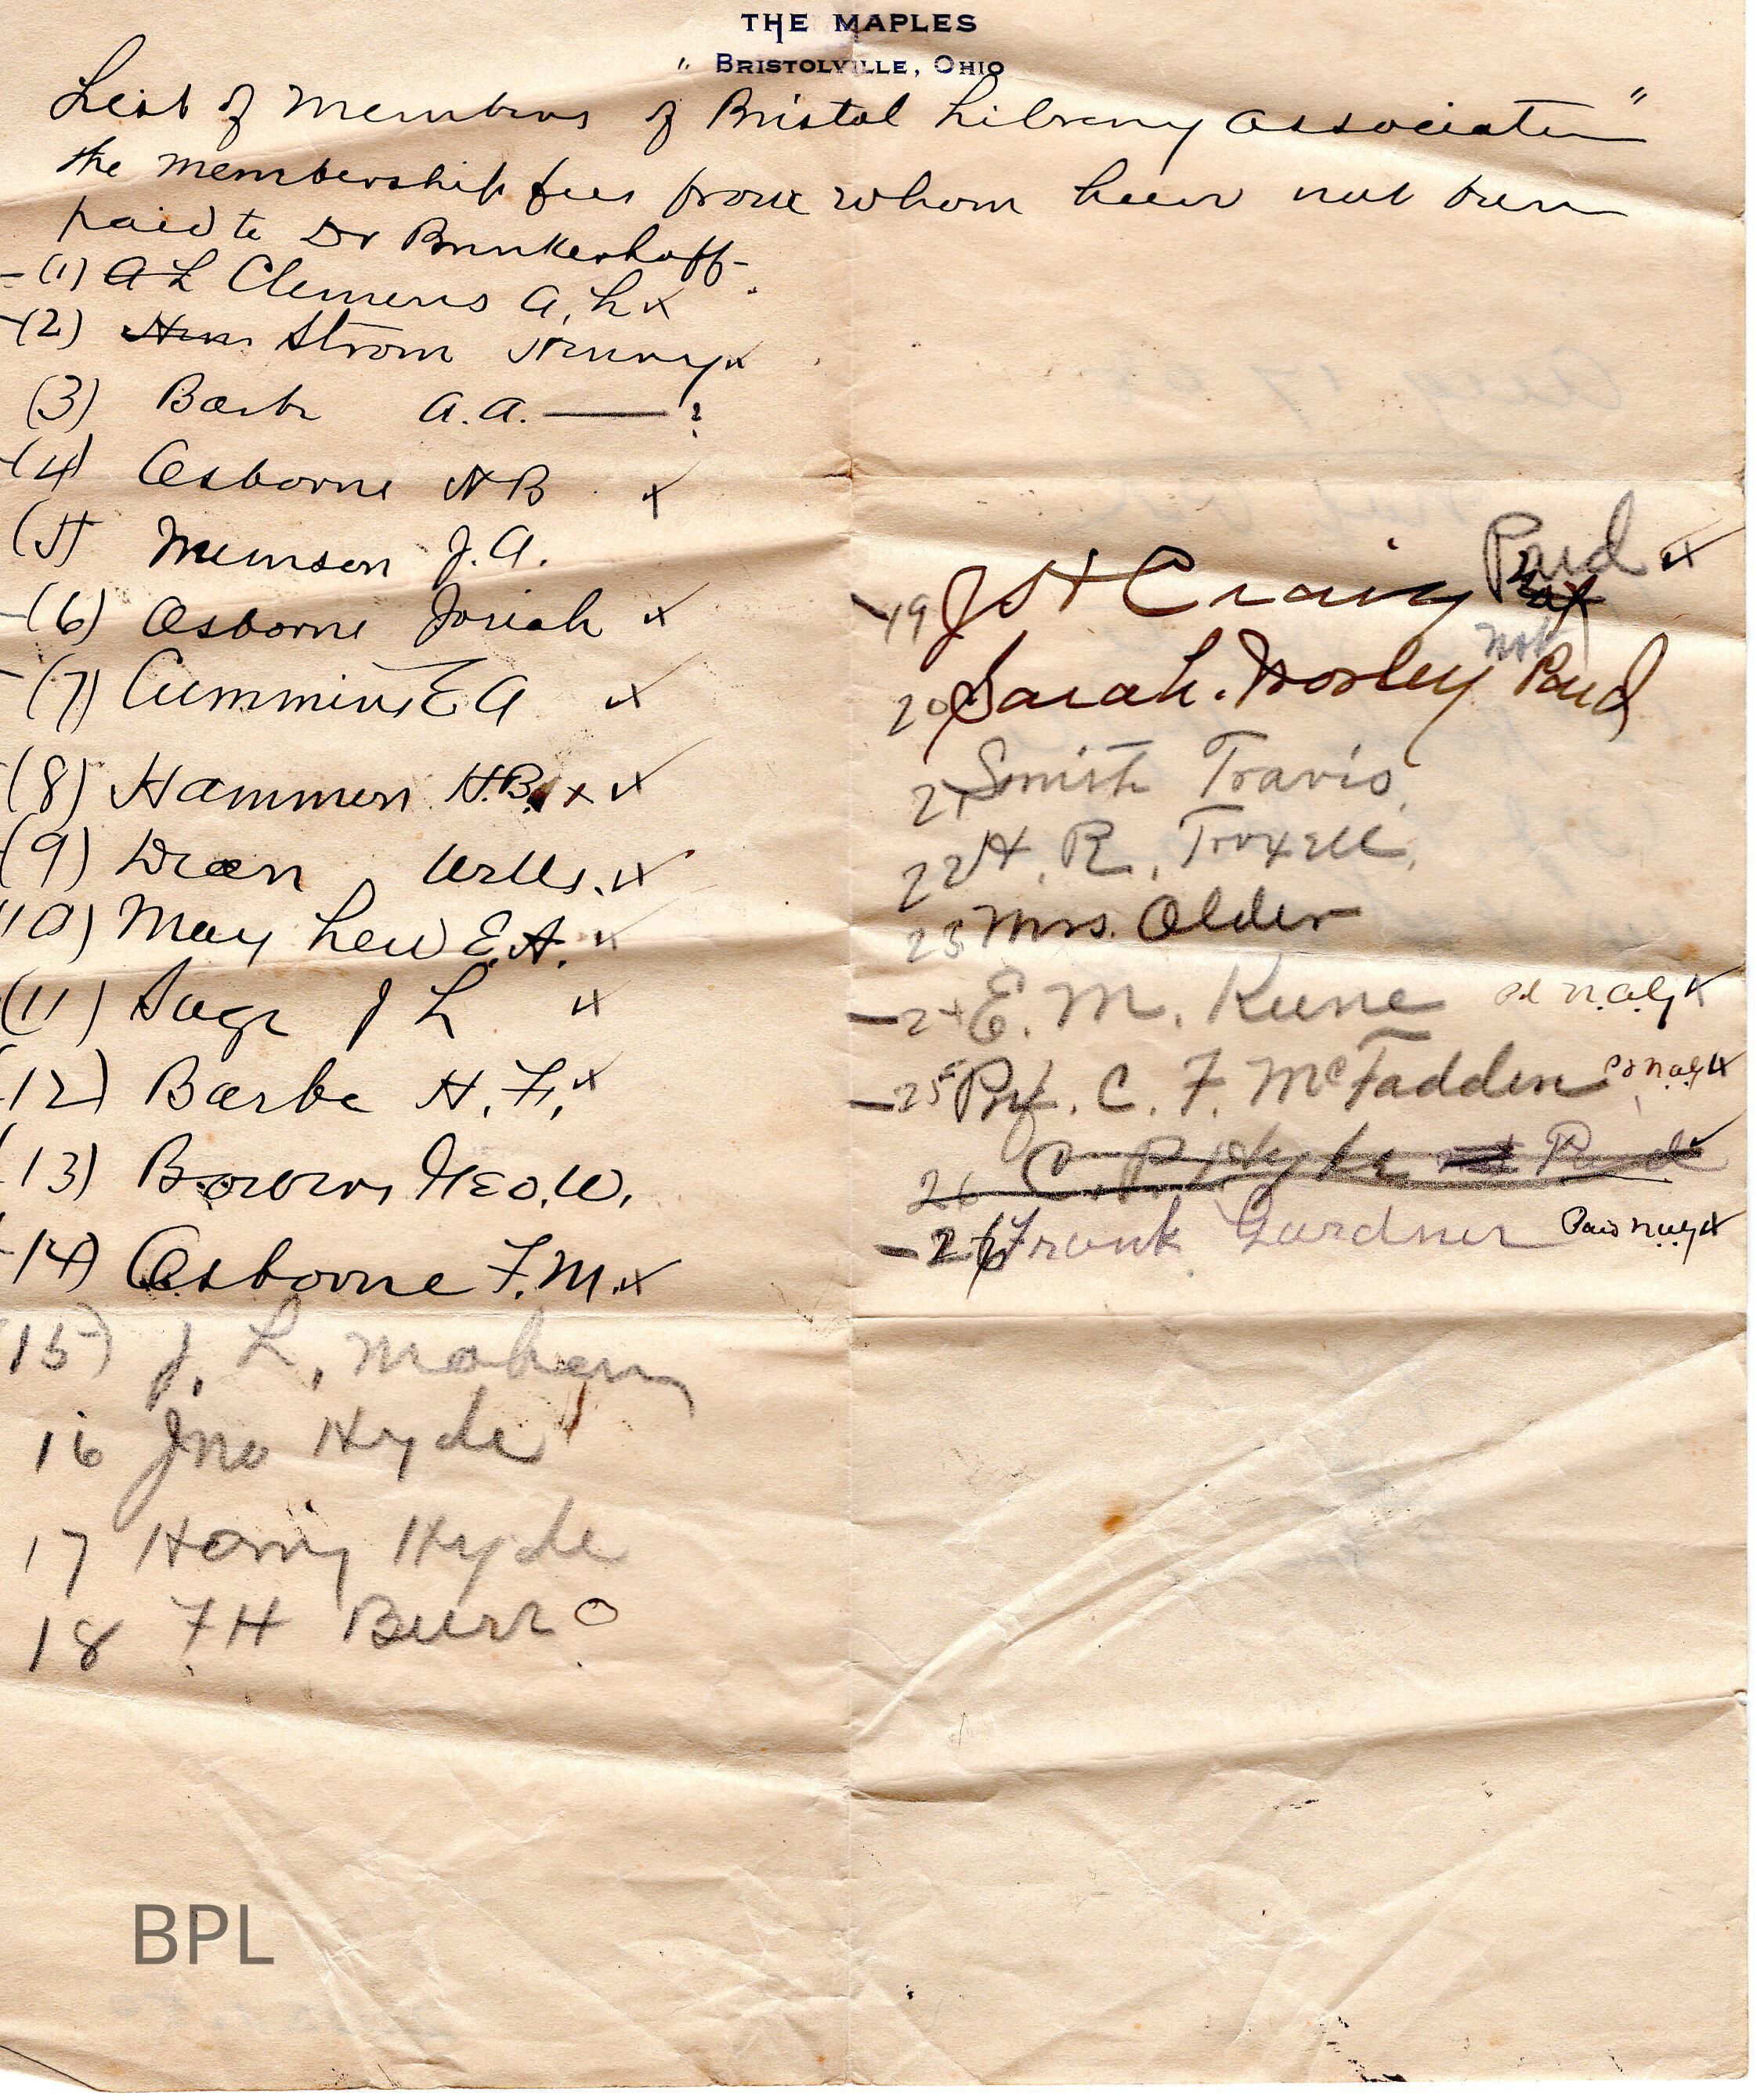 THE MAPLES
BRISTOLVILLE, OHIO
"List of Members of Bristol Library Association"
the membership fees from whom have not been
paid to Dr Brinkerhoff.
(1) A L Clemens A. L x
(2) Strom Henry x
(3) Barbe A.A. — ?
(4) Osborne N B x
(5) Munson J. A.
(6) Osborne Josiah x
(7) Cummins E A x
(8) Hammon H.B. x x
(9) Dean Wells. x
(10) May Lew E.A. x
(11) Sage J L x
(12) Barbe H. F. x
(13) Brown Geo. W.
(14) Osborne F. M. x
(15) J. L. Mahan
16 Jno Hyde
17 Harry Hyde
18 F H Burr
19 J H Craig Paid x
20 Sarah. Mosley not Paid
21 Smith Travis.
22 H. R. Troxell.
23 Mrs. Older
24 E. M. Kune Pd x
25 Prf. C. F. McFadden Pd x
26 C. P. Hyde not Paid
26 Frank Gardner Paid x
BPL